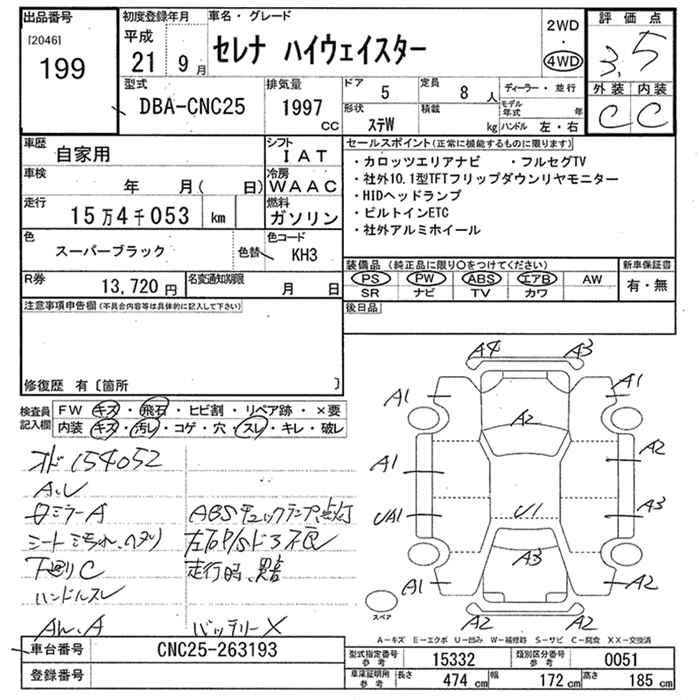 出品番号
[2046]
199
初度登録年月
平成
21 9 月
車名・グレード
セレナ ハイウェイスター
2WD
・
4WD
評価点
3.5
外装 内装
C C
型式
DBA-CNC25
排気量
1997 CC
ドア 5
定員 8 人
形状 ステW
積載 kg
ディーラー・並行
モデル年式 年
ハンドル 左・右
車歴 自家用
シフト IAT
車検 年 月( 日)
冷房 WAAC
走行 15万4千053 km
燃料 ガソリン
色 スーパーブラック
色替
色コード KH3
R券 13,720 円
名変通知期限 月 日
セールスポイント(正常に機能するものに限ります)
・カロッツエリアナビ ・フルセグTV
・社外10.1型TFTフリップダウンリヤモニター
・HIDヘッドランプ
・ビルトインETC
・社外アルミホイール
装備品(純正品に限り○をつけてください)
PS PW ABS エアB AW
SR ナビ TV カワ
新車保証書
有・無
後日品
注意事項申告欄(不具合内容等は具体的に記入して下さい)
修復歴 有〔箇所 〕
検査員記入欄
FW キズ・飛石・ヒビ割・リペア跡・×要
内装 キズ・汚レ・コゲ・穴・スレ・キレ・破レ
オド154052
ロミラーA
ABSチェックランプ点灯
シート
下廻りC
走行時、異音
ハンドルスレ
バッテリーX
A4 A3
A1 A1
A2
A1 A2
UA1 U1 A3
A3
A1 A2
A2 A2
スペア
A-キズ E-エクボ U-凹み W-補修跡 S-サビ C-腐食 XX-交換済
車台番号 CNC25-263193
登録番号
型式指定番号 参考 15332
類別区分番号 参考 0051
車庫証明用 参考 長さ 474 cm 幅 172 cm 高さ 185 cm